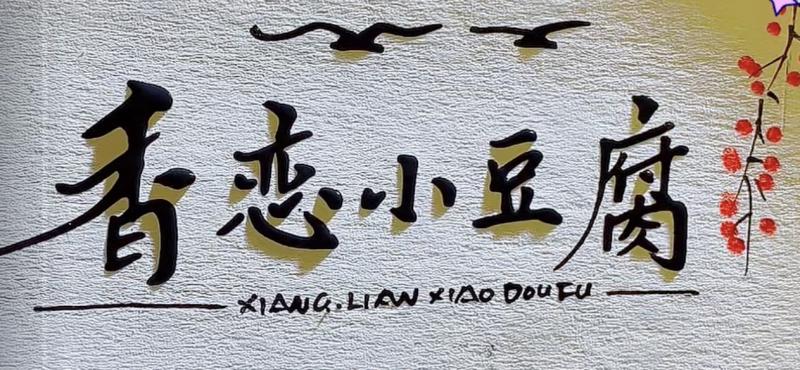 香恋小豆腐
XIANG.LIAN XIAO DOUFU